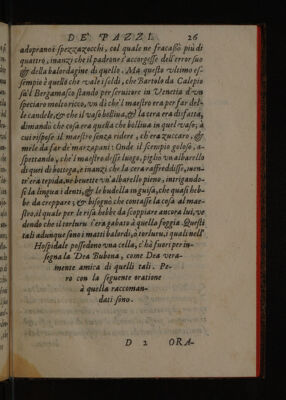 DE' PAZZI. 26
adoprano i spezzazocchi, col quale ne fracassò più di
quattro, inanzi che il padrone s'accorgesse dell'error suo
& della balordagine di quello. Ma questo vltimo es-
sempio è quello che vale i soldi, che Bartolo da Calepio
su'l Bergamasco stando per seruitore in Venetia d'vn
speciaro molto ricco, vn dì che'l maestro era per far del-
le candele, & che'l vaso bolliua, & la cera era disfatta,
dimandò che cosa era quella che bolliua in quel vaso; à
cui rispose il maestro senza ridere, ch'era zuccaro, &
mele da far de' marzapani: Onde il scempio goloso, a-
spettando, che'l maestro desse luogo, pigliò vn albarello
di quei di bottega, e inanzi che la cera raffreddisse, men-
tr'era tepida, ne beuette vn'albarello pieno, intrigando-
si la lingua i denti, & le budella in guisa, che quasi heb-
be da creppare; & bisognò che contasse la cosa al mae-
stro, il quale per le risa hebbe da scoppiare ancora lui, ve
dendo che il torlurù s'era gabato à quella foggia. Questi
tali adunque sono i matti balordi, ò torluru, i quali nell'
Hospidale possedeno vna cella, c'hà fuori per in-
segna la Dea Bubona, come Dea vera-
mente amica di quelli tali. Pe-
rò con la seguente oratione
à quella raccoman-
dati sono.
D 2 ORA-